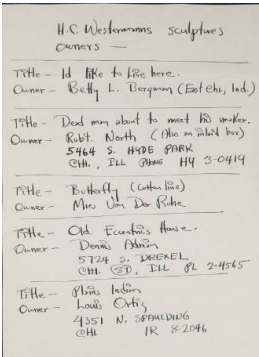 H.C. Westermanns sculptures
owners —
Title - Id like to live here.
Owner - Betty L. Bergman (East Chi., Ind.)
Title - Dead man about to meet his maker.
Owner - Robt. North (Also an inlaid box)
5464 S. HYDE PARK
CHI., ILL PHONE HY 3-0419
Title - Butterfly (Cotton line)
Owner - Mies Van Der Rohe
Title - Old Eccentric's House.
Owner - Dennis Adrian
5724 S. DREXEL
CHI. ILL PL 2-4565
Title - Plains Indian
Owner - Louis Ortiz
4351 N. SPAULDING
CHI IR 8-2046